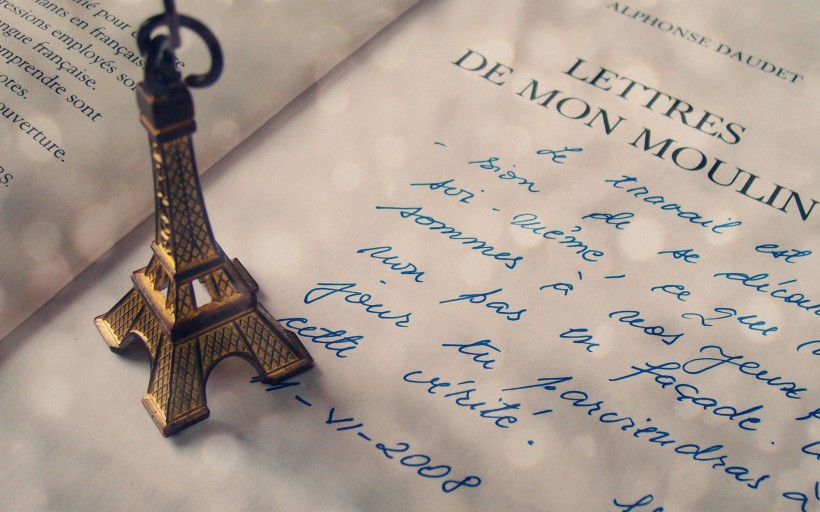 pour
en français
expressions employés
langue française.
comprendre sont
ores.
couverture.
rs.
ALPHONSE DAUDET
LETTRES
DE MON MOULIN
Le travail est
- sion de se décou
soi-même, ce que
sommes à nos yeux
non pas en façade.
jour tu parviendras à
cette vérité.
-VI-2008